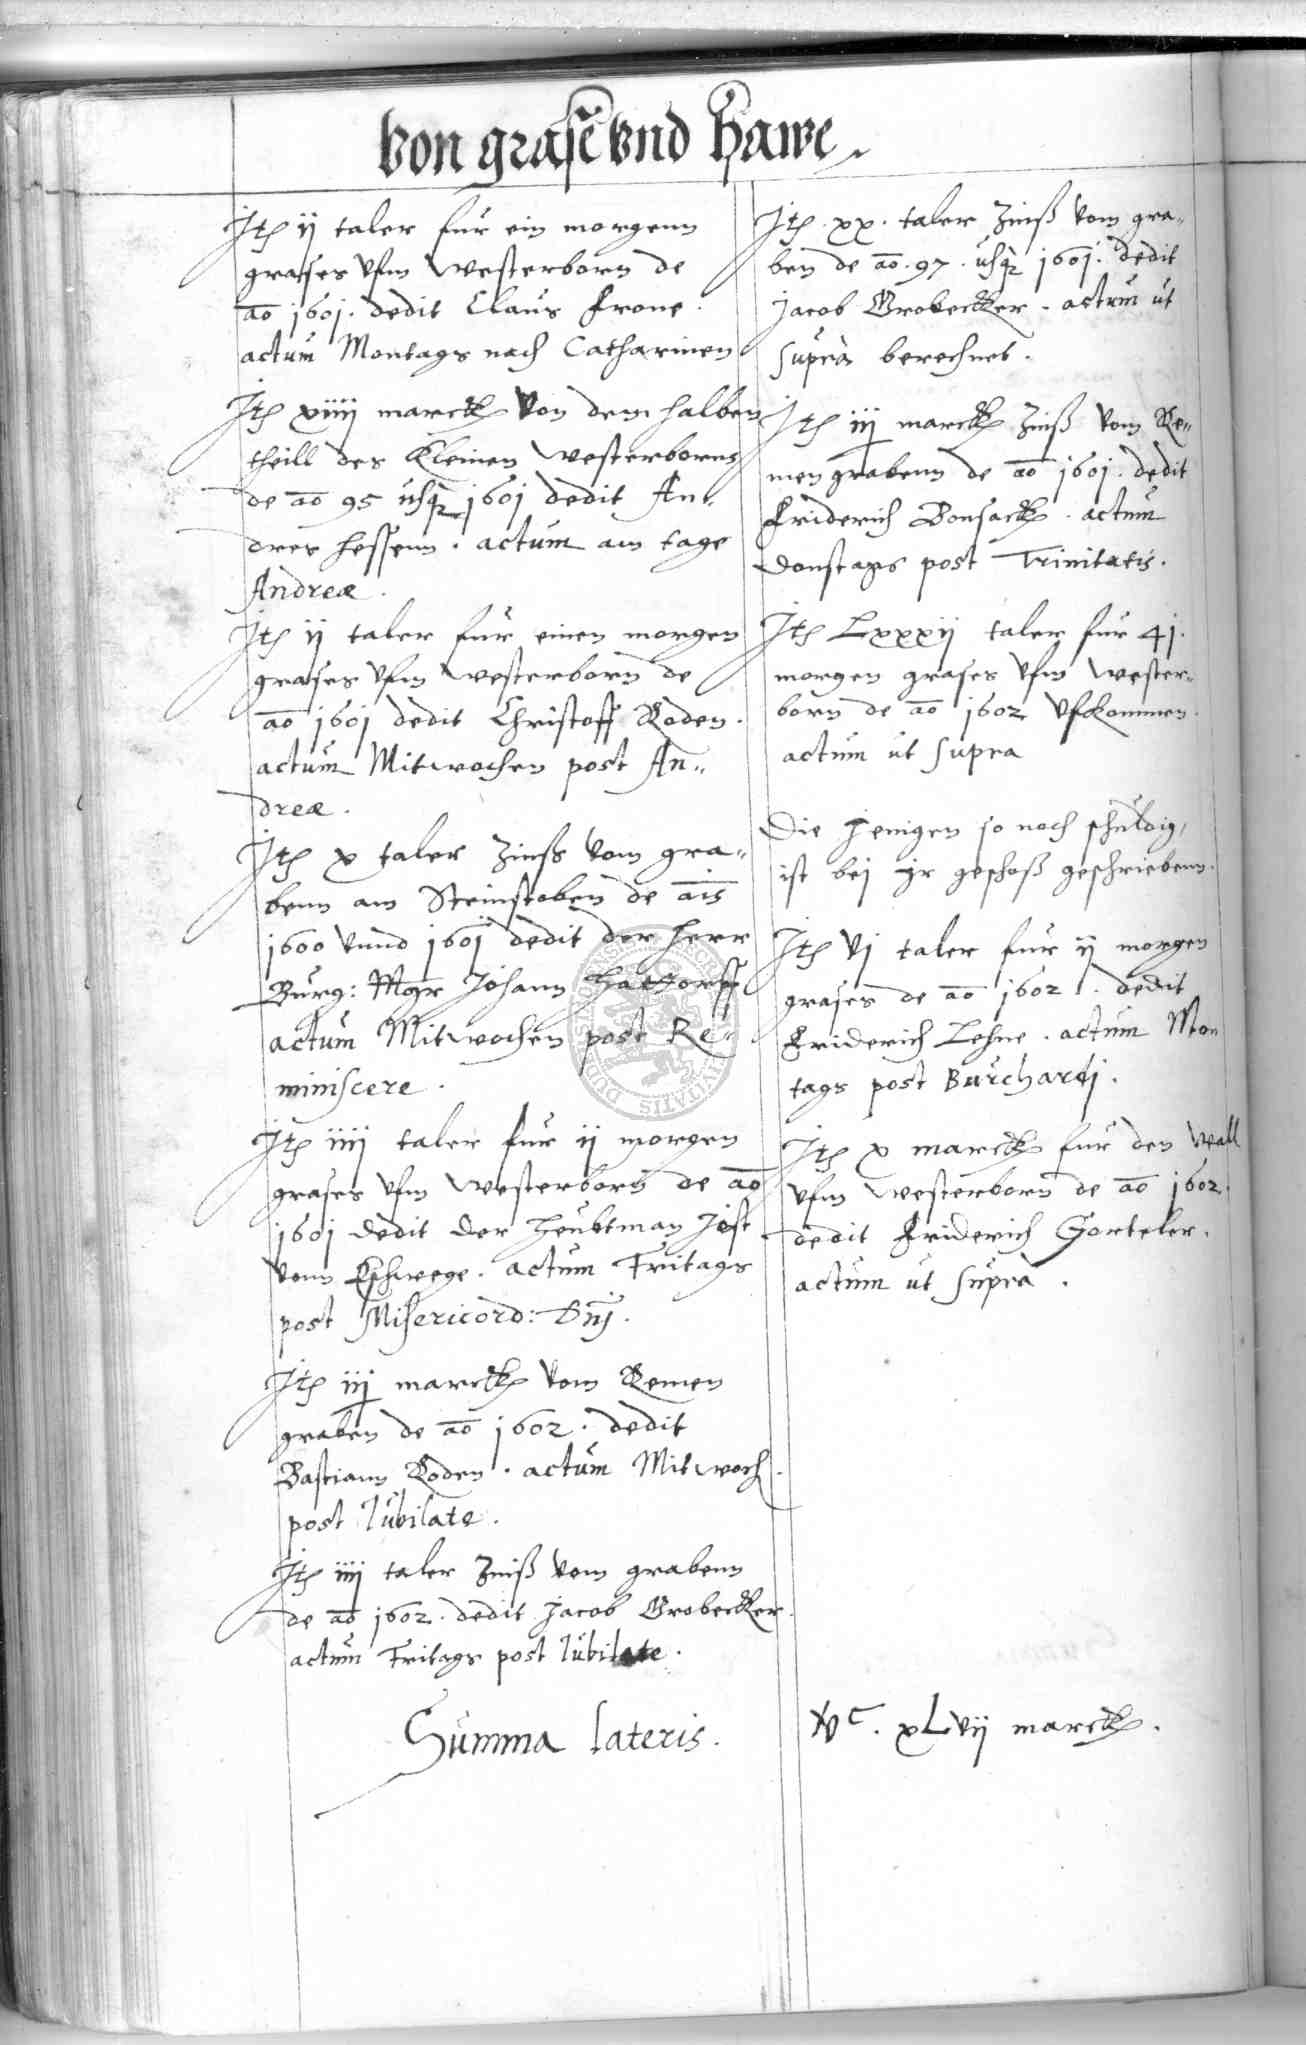 Von grasē vnd Hawe
Itē ij taler fur ein morgenn
grases vfm Westerborn de
ao 1601. dedit Claus Frone.
actum Montags nach Catharinen
Itē xiiij marck von dem halben
theill des kleinen Westerborns
de ao 95 usq 1601 dedit An-
dres Hessenn. actum am tage
Andreæ.
Itē ij taler fur einen morgen
grases vfm Westerborn de
ao 1601 dedit Christoff Roden.
actum Mitwochen post An-
dreæ.
Itē x taler Zinss vom gra-
benn am Steinstoben de ais
1600 vnnd 1601 dedit der Herr
Burg: Mgr Johann Hattorff
actum Mitwochen post Re-
miniscere.
Itē iiij taler fur ij morgen
grases vfm Westerborn de ao
1601 dedit der Heubtman Jost
vonn Eschwege. actum Fritags
post Misericord: Dnj.
Itē iij marck vom Remen
graben de ao 1602. dedit
Bastiann Roden. actum Mitwoch
post Iubilate.
Itē iiij taler Zinß vom grabenn
de ao 1602. dedit Jacob Grobecker.
actum Fritags post Iubilate.
Itē. xx. taler Zinß vom gra-
ben de ao. 97. usq 1601. dedit
Jacob Grobecker. actum ut
supra berechnet.
Itē iij marck Zinß vom Re-
men grabenn de ao 1601. dedit
Friderich Bonsack. actum
Donstags post Trinitatis.
Itē Lxxxij taler fur 41.
morgen grases vfm Wester-
born de ao 1602 vfkommen.
actum ut supra
Die Jenigen so noch schuldig,
ist bej jr geschoß geschriebenn.
Itē vj taler fur ij morgen
grases de ao 1602. dedit
Friderich Lehne. actum Mon
tags post Burchardj.
Itē x marck fur den Wall
vfm Westerborn de ao 1602.
dedit Friderich Gorteler.
actum ut supra.
Summa lateris. vc. xLvij marck.